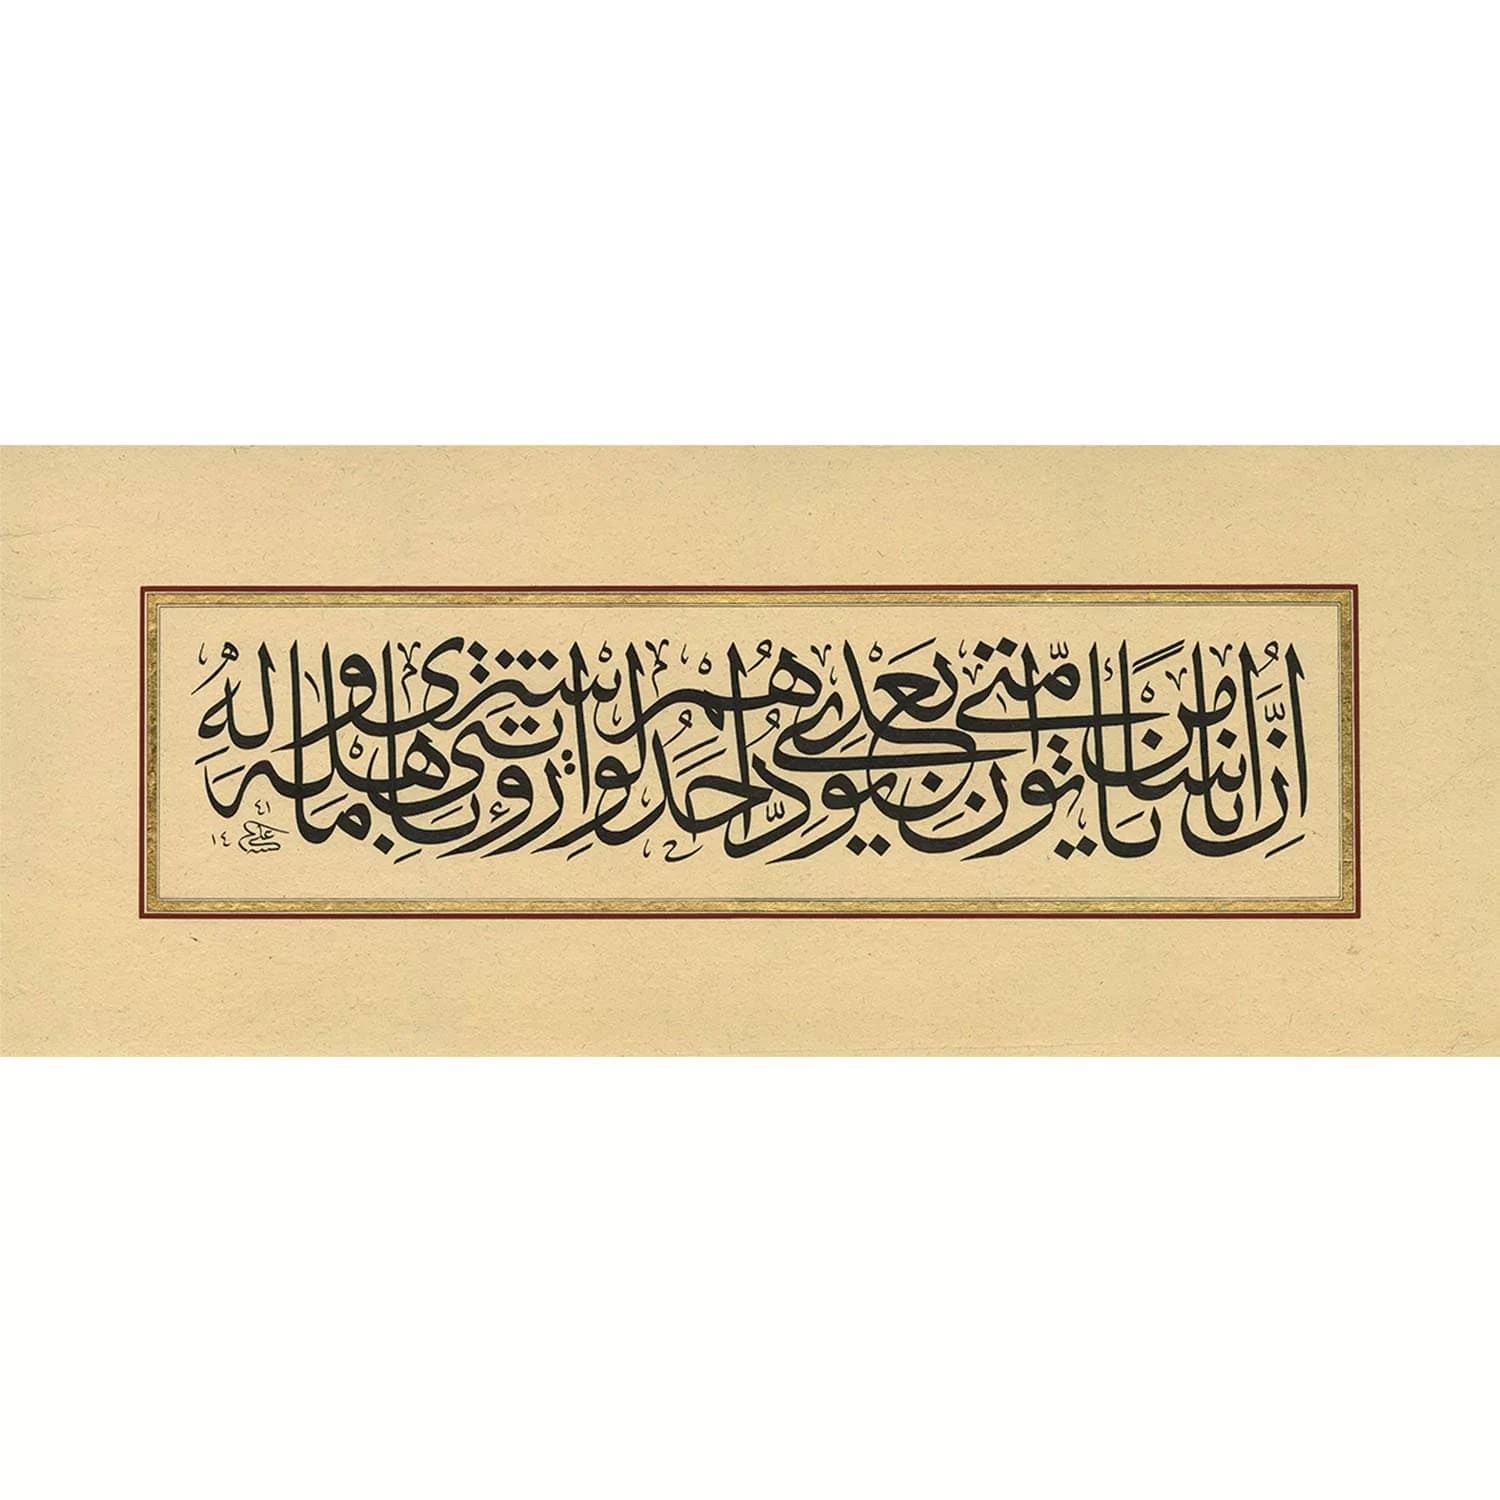 إِنَّ أُنَاسًا مِنْ أُمَّتِى يَأْتُونَ بَعْدِى يَوَدُّ أَحَدُهُمْ لَوِ اشْتَرٰى رُؤْيَتِى بِأَهْلِهِ وَمَالِهِ
١٤٤١